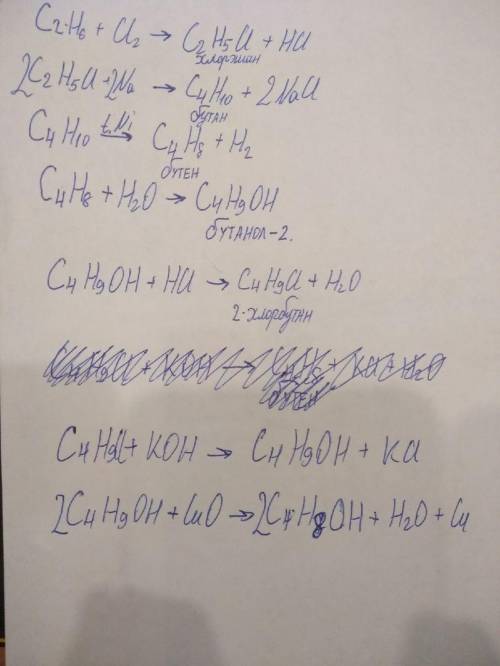 C₂H₆ + Cl₂ → C₂H₅Cl + HCl
хлорэтан
2C₂H₅Cl + 2Na → C₄H₁₀ + 2NaCl
бутан
C₄H₁₀ t, Ni → C₄H₈ + H₂
бутен
C₄H₈ + H₂O → C₄H₉OH
бутанол-2.
C₄H₉OH + HCl → C₄H₉Cl + H₂O
2-хлорбутан
C₄H₉Cl + KOH → C₄H₉OH + KCl
2C₄H₉OH + CuO → 2C₄H₈OH + H₂O + Cu